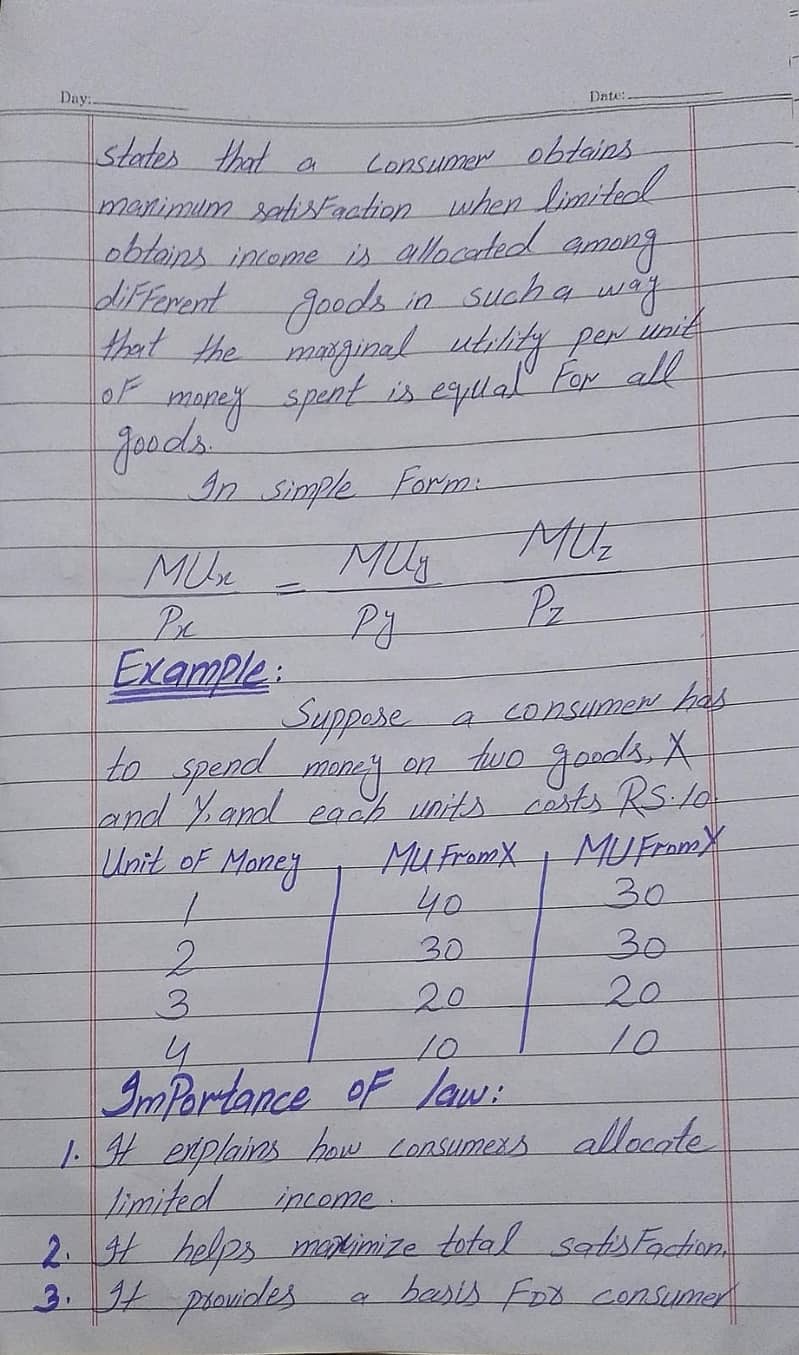 Day:
Date:
states that a consumer obtains
maximum satisfaction when limited
obtains income is allocated among
different goods in such a way
that the marginal utility per unit
of money spent is equal for all
goods.
In simple Form:
MUx = MUy MUz
Px Py Pz
Example:
Suppose a consumer has
to spend money on two goods, X
and Y, and each units costs RS.10.
Unit of Money MU From X MU From Y
1 40 30
2 30 30
3 20 20
4 10 10
Importance of law:
1. It explains how consumers allocate
limited income.
2. It helps maximize total satisfaction.
3. It provides a basis for consumer